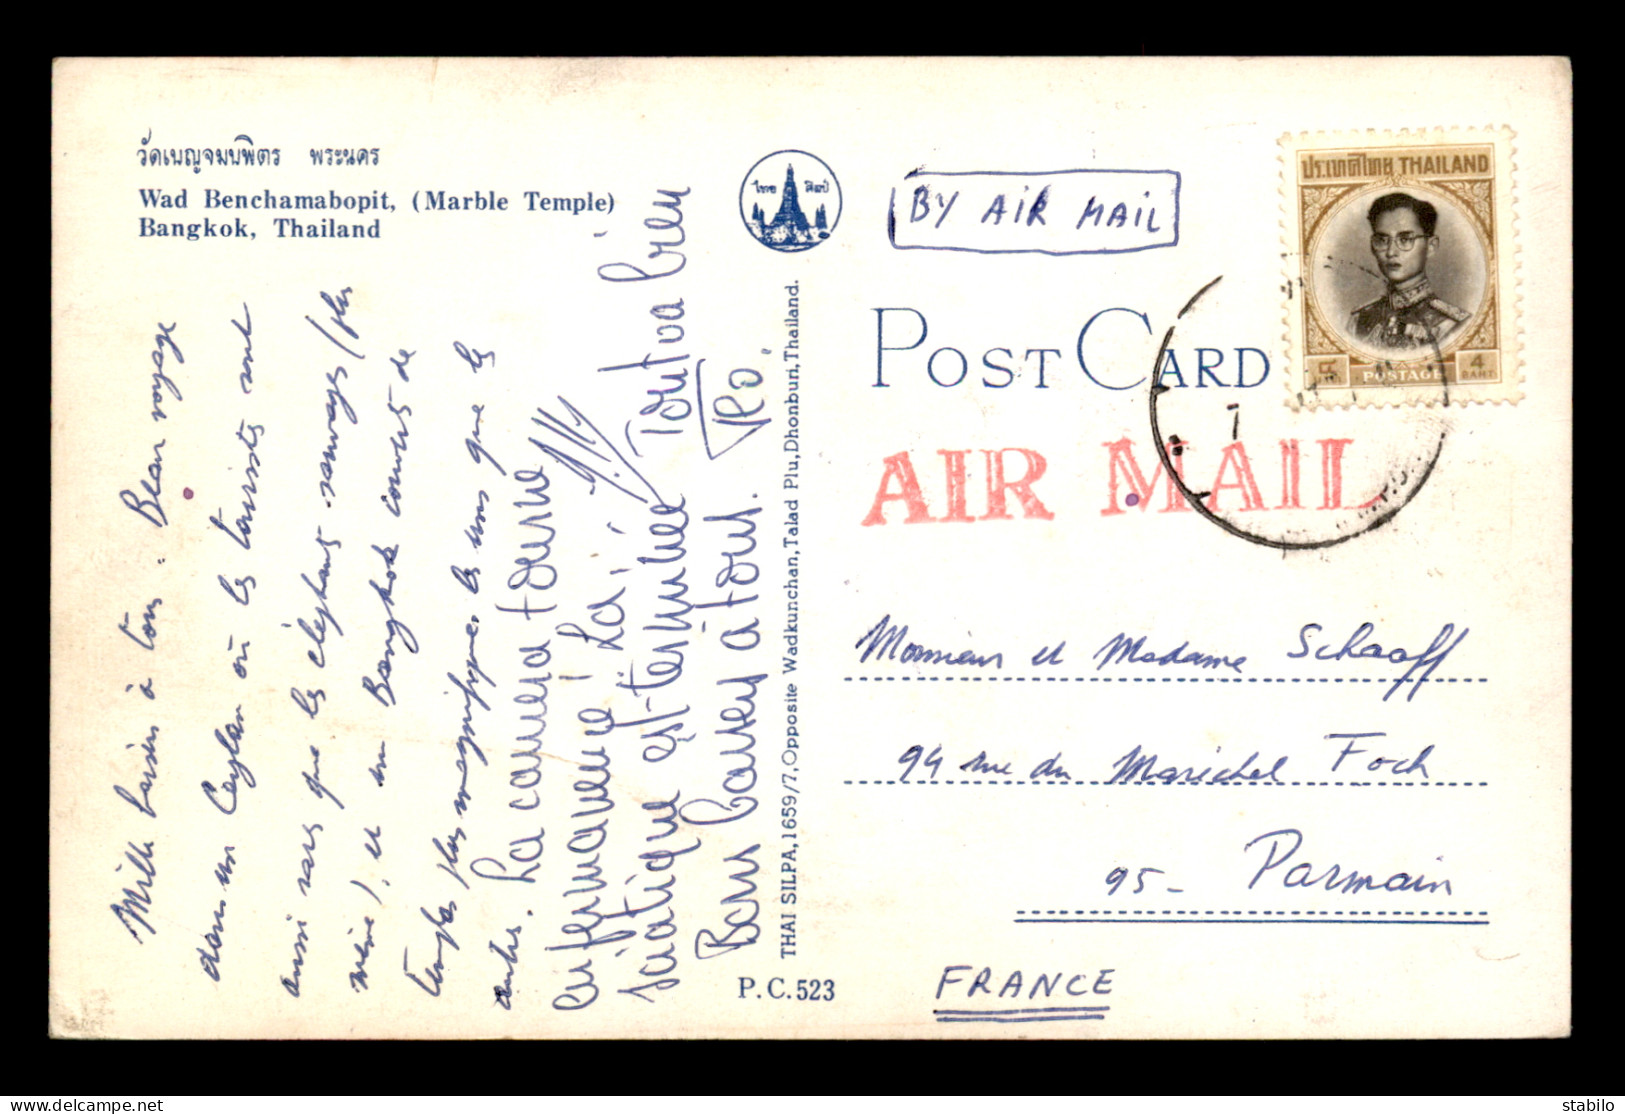 วัดเบญจมบพิตร พระนคร
Wad Benchamabopit, (Marble Temple)
Bangkok, Thailand
ไทย ศิลป์
Mille baisers à tous. Beau voyage
dans un Ceylan où les touristes sont
aussi rares que les éléphants sauvages (plus
même), et un Bangkok couvert de
temples plus magnifiques les uns que les
autres. La caméra tourne
en permanence! La
sciatique est terminée Tout va bien
Bons baisers à tous.
THAI SILPA, 1659/7, Opposite Wadkunchan, Talad Plu, Dhonburi, Thailand.
P.C. 523
BY AIR MAIL
ประเทศไทย THAILAND
4
BAHT
POSTAGE
POST CARD
AIR MAIL
7
Monsieur et Madame Schaaff
94 rue du Maréchel Foch
95- Parmain
FRANCE
stabilo